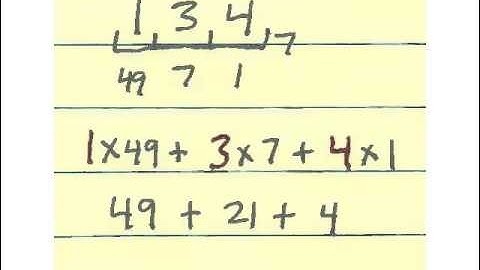 1 3 4 7
49 7 1
1×49 + 3×7 + 4×1
49 + 21 + 4